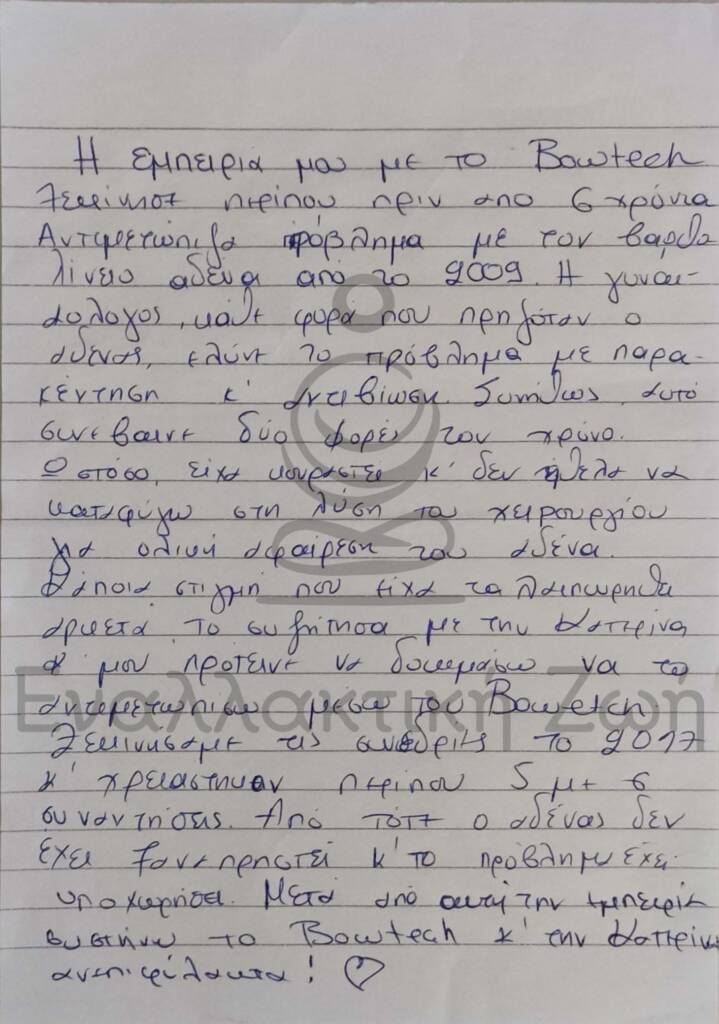 Η εμπειρία μου με το Bowtech
ξεκίνησε περίπου πριν απο 6 χρόνια
Αντιμετώπιζα πρόβλημα με τον βαρθο
λίνειο αδένα από το 2009. Η γυναι-
κολογος, κάθε φορα που πρηζόταν ο
αδένας, έλυνε το πρόβλημα με παρα-
κέντηση κ' αντιβίωση. Συνήθως, αυτό
συνέβαινε δύο φορές τον χρόνο.
Ωστόσο, είχα κουραστεί κ' δεν ήθελα να
καταφύγω στη λύση του χειρουργίου
για ολική αφαίρεση του αδένα.
Κάποια στιγμή που είχα ταλαιπωρηθεί
αρκετά, το συζήτησα με την Κατερίνα
κ' μου πρότεινε να δοκιμάσω να το
αντιμετωπίσω μέσω του Bowtech.
Εναλλακτική Ζωή
Ξεκινήσαμε τις συνεδρίες το 2017
κ' χρειάστηκαν περίπου 5 με 6
συναντήσεις. Από τότε ο αδένας δεν
έχει ξαναπρηστεί κ' το πρόβλημα έχει
υποχωρήσει. Μετά από αυτή την εμπειρία
συστήνω το Bowtech κ' την Κατερίνα
ανεπιφύλακτα! ♡